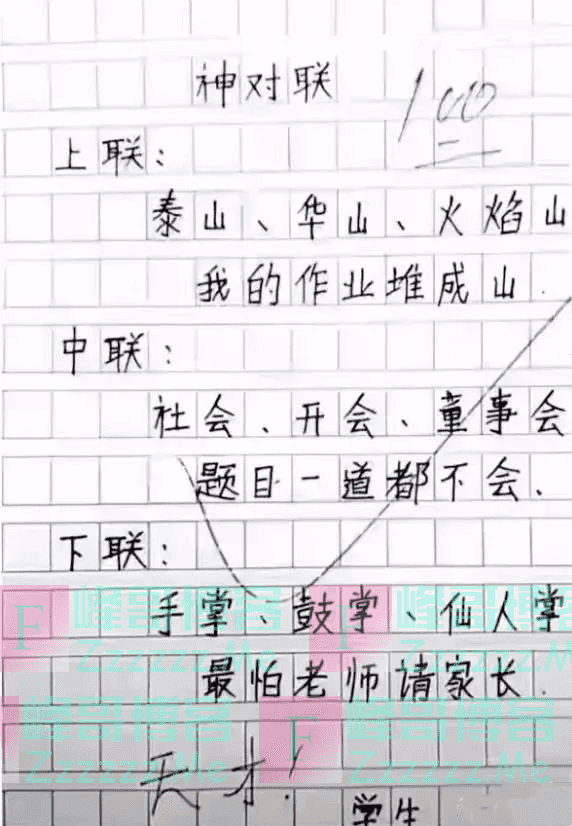 神对联
100
上联：
泰山、华山、火焰山
我的作业堆成山.
中联：
社会、开会、童事会
题目一道都不会、
下联：
手掌、鼓掌、仙人掌
最怕老师请家长.
天才！
学生
F 峰哥博客
Zzzzzz.Me
F 峰哥博客
Zzzzzz.Me
F 峰哥博客
Zzzzzz.Me
F 峰哥博客
Zzzzzz.Me